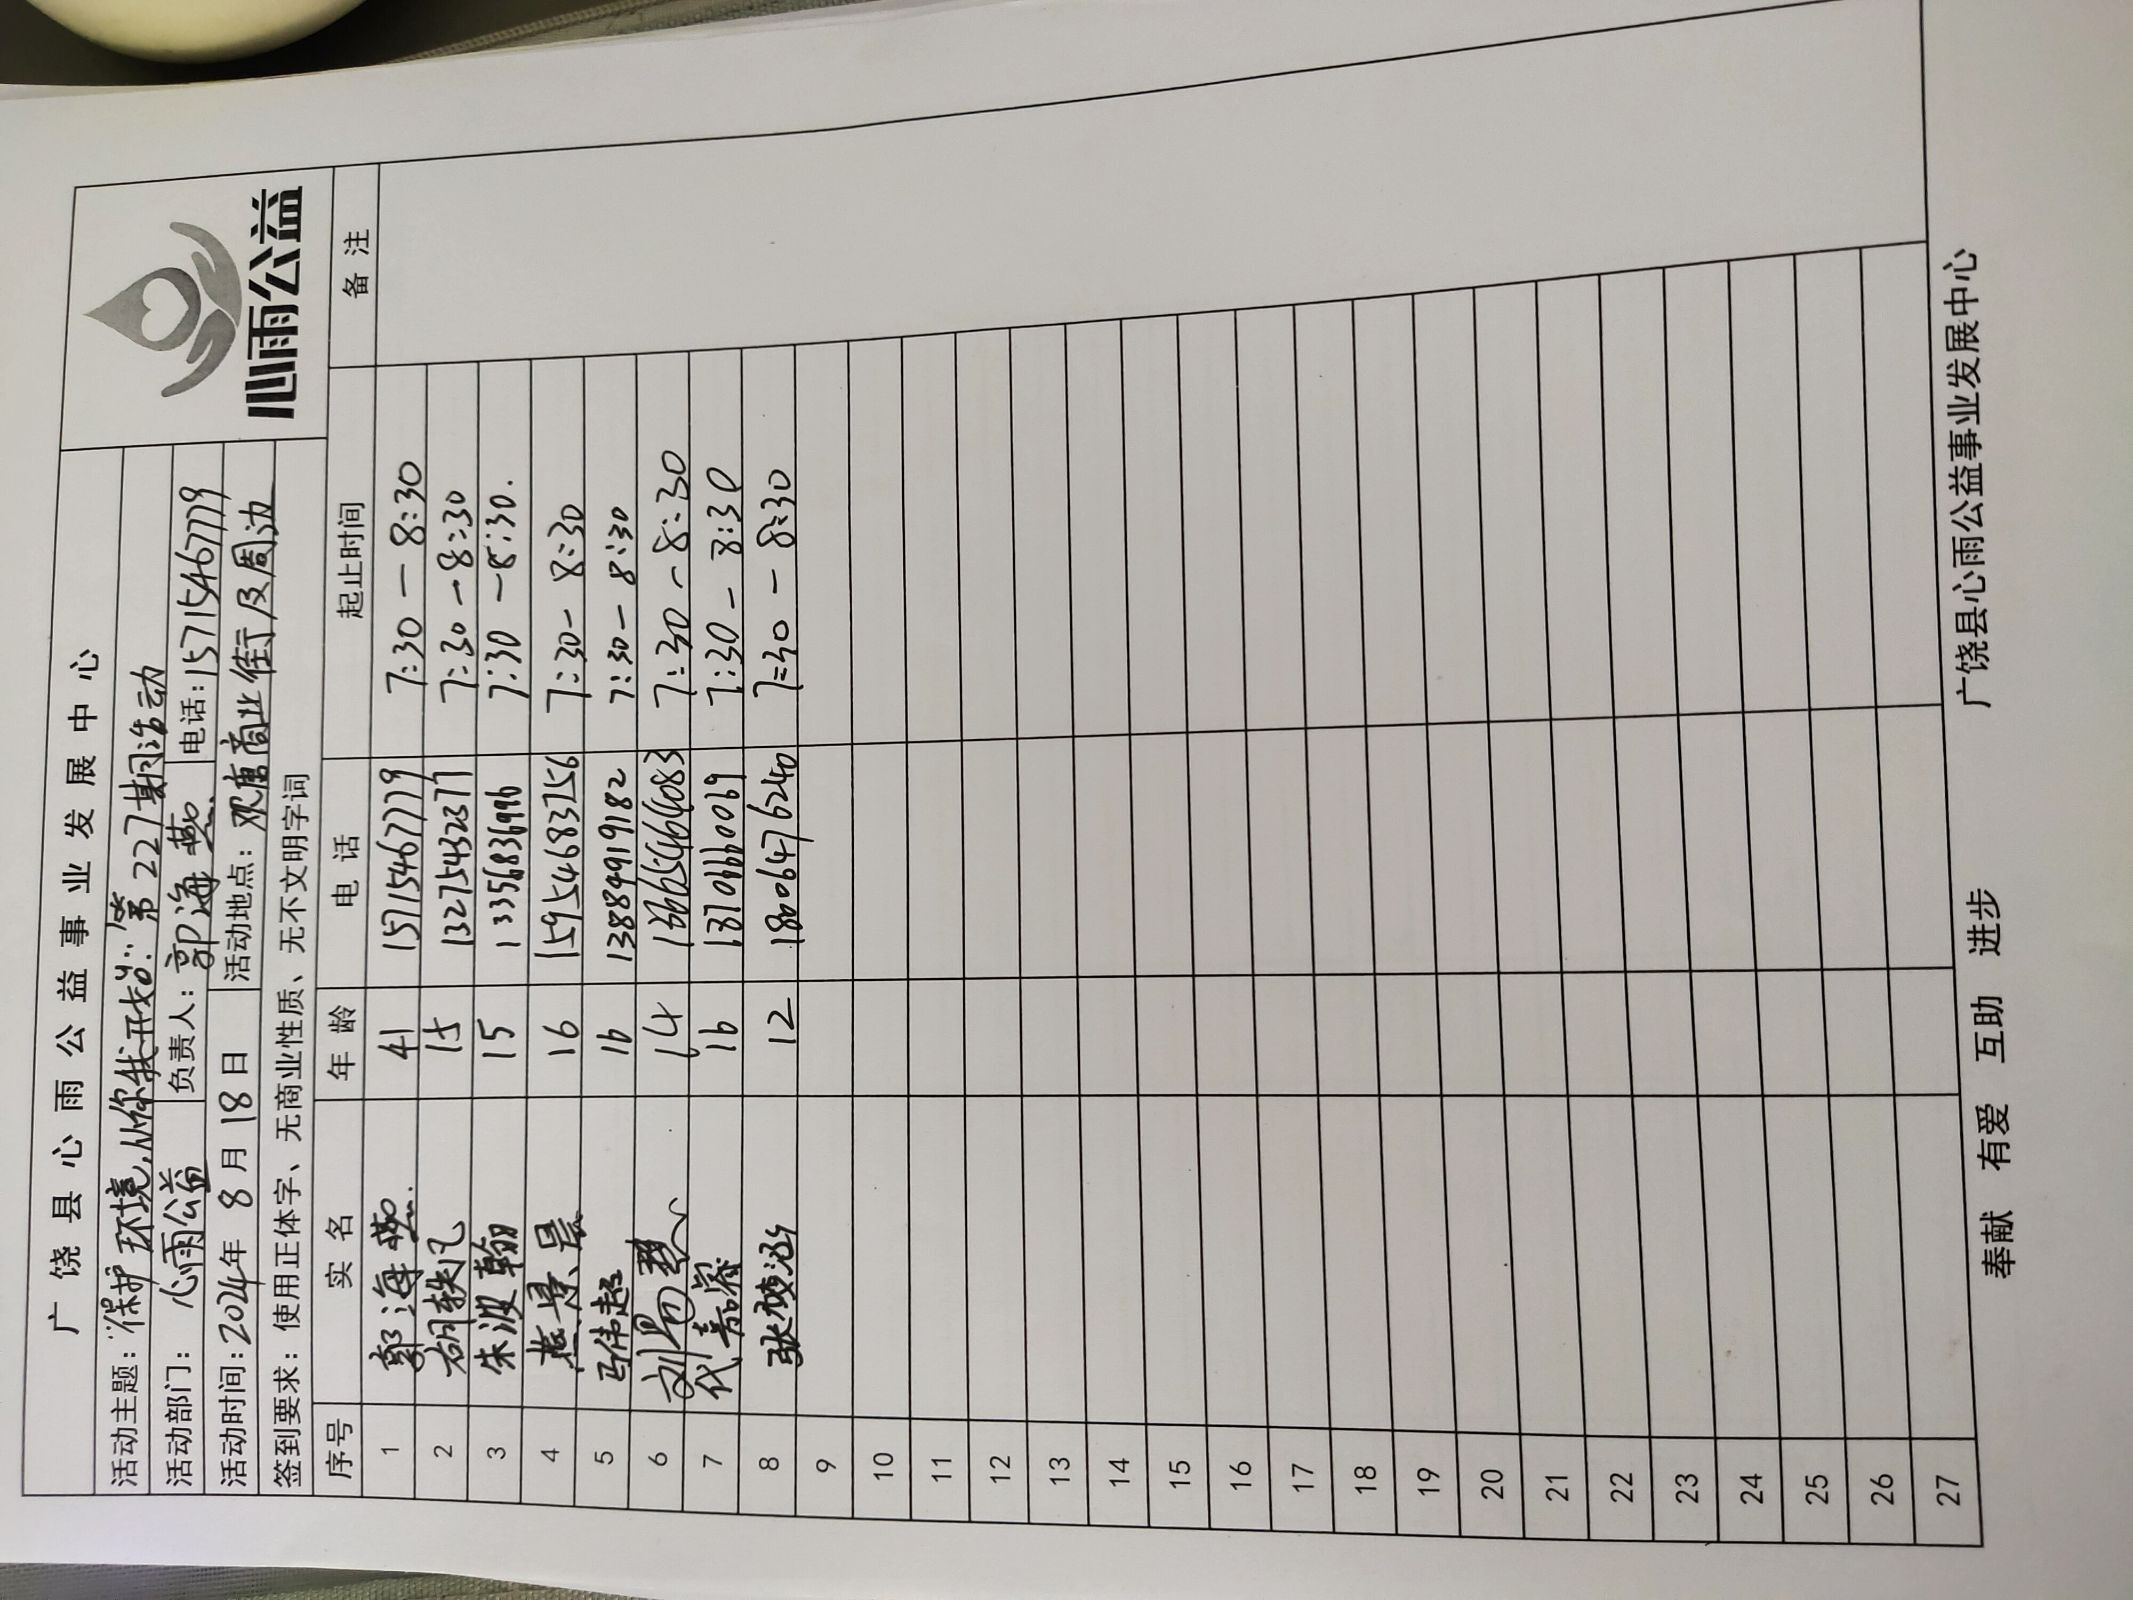 广饶县心雨公益事业发展中心
心雨公益
活动主题：“保护环境，从你我开始”第227期活动
活动部门：心雨公益 负责人：郭海燕 电话：15715467779
活动时间：2024年8月18日 活动地点：观唐商业街及周边
签到要求：使用正体字、无商业性质、无不文明字词
序号 实名 年龄 电话 起止时间 备注
1 郭海燕 41 15715467779 7:30—8:30
2 胡轶凡 15 13275432377 7:30—8:30
3 朱波翰 15 13356836996 7:30—8:30.
4 燕景晨 16 15954683756 7:30—8:30
5 马伟超 16 13884919182 7:30—8:30
6 刘 14 7:30—8:30
7 代嘉睿 16 7:30—8:30
8 张 12 18006476240 7:30—8:30
9
10
11
12
13
14
15
16
17
18
19
20
21
22
23
24
25
26
27
奉献 有爱 互助 进步 广饶县心雨公益事业发展中心